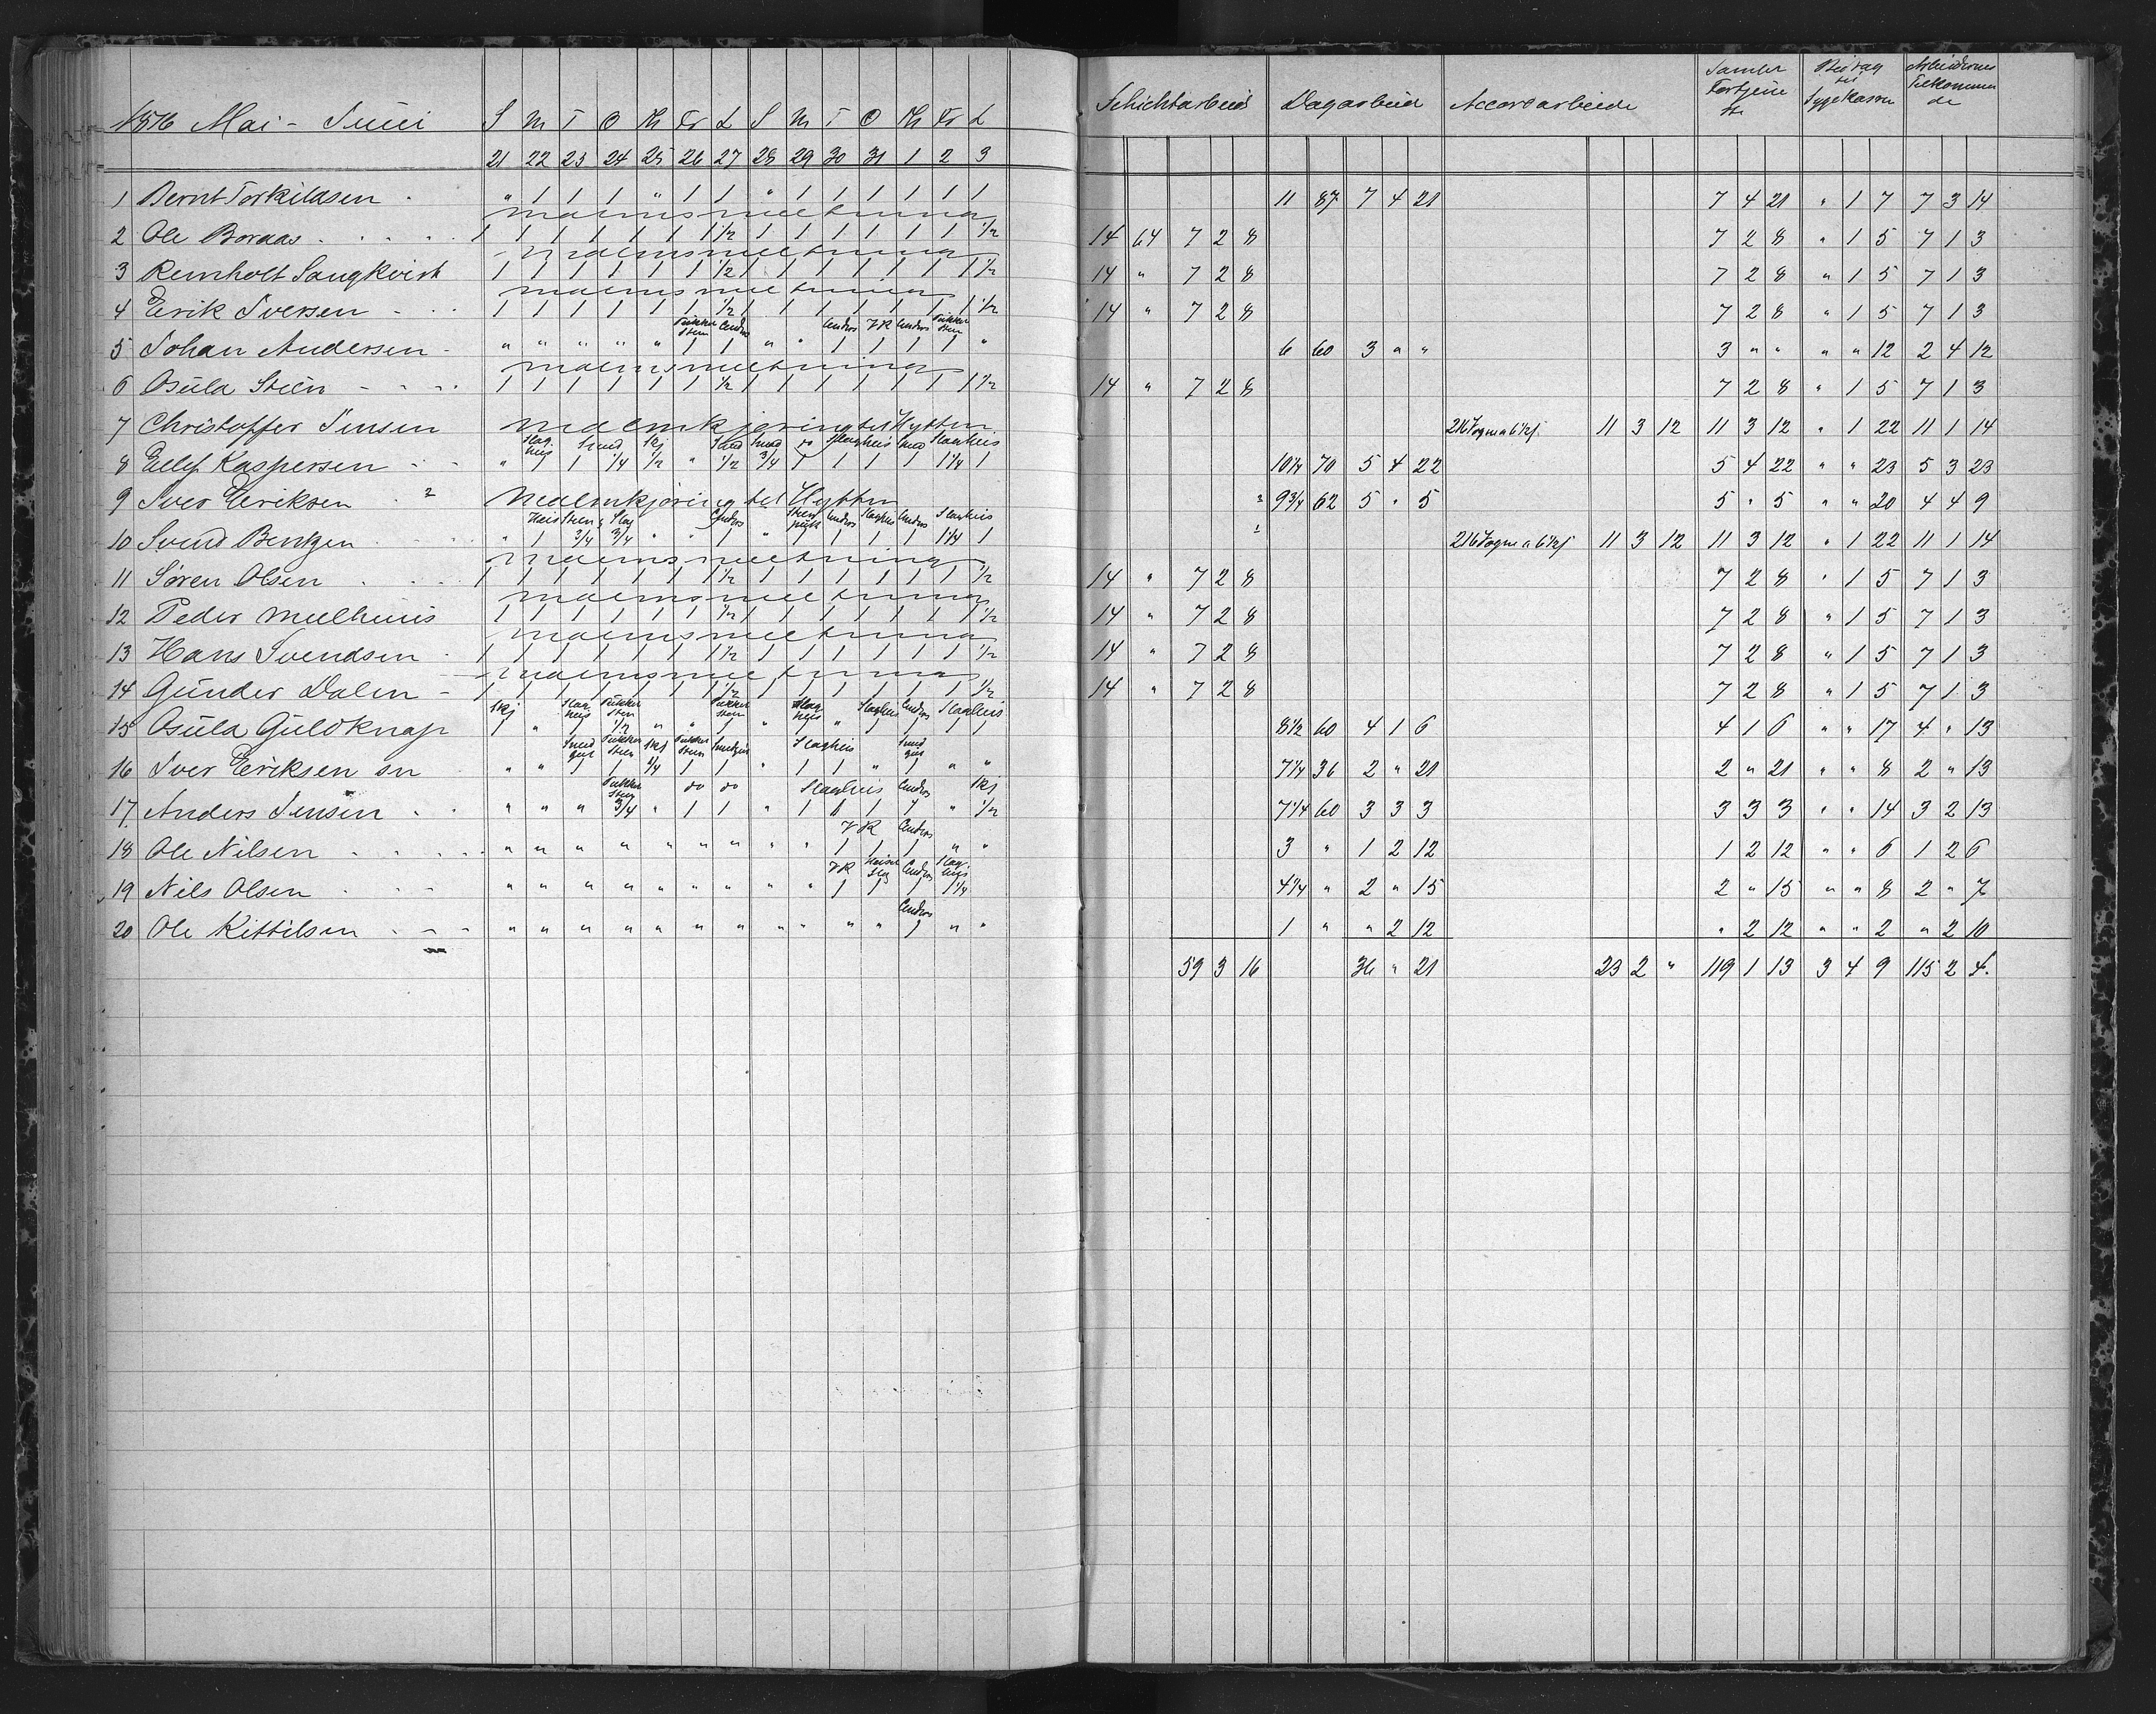 1876 Mai - Juni S M T O Th Fr L S M T O Th Fr L Schichtarbeid Dagarbeid Accordarbeide Samlet Fortjeneste Bidrag til Sygekassen Arbeidernes Tilkommende
21 22 23 24 25 26 27 28 29 30 31 1 2 3
1 Bernt Torkildsen " 1 1 1 " 1 1 " 1 1 1 1 1 1 11 87 7 4 21 7 4 21 " 1 7 7 3 14
malmsmeltning
2 Ole Boraas 1 1 1 1 1 1 1 1/2 1 1 1 1 1 1 1/2 14 64 7 2 8 7 2 8 " 1 5 7 1 3
malmsmeltning
3 Remholt Sangkvist 1 1 1 1 1 1 1/2 1 1 1 1 1 1 1 1/2 14 " 7 2 8 7 2 8 " 1 5 7 1 3
malmsmeltning
4 Erik Iversen 1 1 1 1 1 1 1/2 1 1 1 1 1 1 1 1/2 14 " 7 2 8 7 2 8 " 1 5 7 1 3
Pukker Sten Cinders Cinders VK Cinders Pukker Sten
5 Johan Andersen " " " " " 1 1 " " 1 1 1 1 " 6 60 3 " " 3 " " " " 12 2 4 12
malmsmeltning
6 Osula Steen 1 1 1 1 1 1 1/2 1 1 1 1 1 1 1 1/2 14 " 7 2 8 7 2 8 " 1 5 7 1 3
7 Christoffer Jensen Malmkjøring til Hytten 216 Vogne a 6 1/2 ſ 11 3 12 11 3 12 " 1 22 11 1 14
Slaghuis Smed Skj Smed Smed do Slaghuis Smed Slaghuis
8 Ellef Kaspersen " 1 1 1/4 1/2 " 1/2 3/4 1 1 1 1 1 1/4 1 10 1/4 70 5 4 22 5 4 22 " " 23 5 3 23
9 Iver Eriksen 2 Malmkjøring til Hytten 2 9 3/4 62 5 " 5 5 " 5 " " 20 4 4 9
Heis Sten & Slag Cinders Sten pukk Cinders Slaghus Cinders Slaghuis
10 Svend Bentzen " 1 3/4 3/4 " " 1 " 1 1 1 1 1 1/4 1 1 216 Vogne a 6 1/2 ſ 11 3 12 11 3 12 " 1 22 11 1 14
malmsmeltning
11 Søren Olsen 1 1 1 1 1 1 1 1/2 1 1 1 1 1 1 1/2 14 " 7 2 8 7 2 8 " 1 5 7 1 3
malmsmeltning
12 Peder Meelhuus 1 1 1 1 1 1 1/2 1 1 1 1 1 1 1 1/2 14 " 7 2 8 7 2 8 " 1 5 7 1 3
malmsmeltning
13 Hans Svendsen 1 1 1 1 1 1 1 1/2 1 1 1 1 1 1 1/2 14 " 7 2 8 7 2 8 " 1 5 7 1 3
malmsmeltning
14 Gunder Dalen 1 1 1 1 1 1 1 1/2 1 1 1 1 1 1 1/2 14 " 7 2 8 7 2 8 " 1 5 7 1 3
Skj Slaghuis Pukker Sten Pukker Sten Slaghuis Slaghuis Cinders Slaghuis
15 Osula Guldknap 1 " 1 1/2 " " 1 " 1 " 1 1 1 1 8 1/2 60 4 1 6 4 1 6 " " 17 4 " 13
Smed gut Pukker Sten Skj Pukker Sten Smedgut Slaghuis Smed gut
16 Iver Eriksen sn " " 1 1 1/4 1 1 " 1 1 " 1 " " 7 1/4 36 2 " 21 2 " 21 " " 8 2 " 13
Pukker Sten do do Slaghuis Cinders Skj
17 Anders Jensen " " " 3/4 " 1 1 " 1 1 1 1 " 1/2 7 1/4 60 3 3 3 3 3 3 " " 14 3 2 13
VK Cinders
18 Ole Nilsen " " " " " " " " " 1 1 1 " " 3 " 1 2 12 1 2 12 " " 6 1 2 6
VK Heise Slag Cinders Slaghuis
19 Nils Olsen " " " " " " " " " 1 1 1 1 1/4 4 1/4 " 2 " 15 2 " 15 " " 8 2 " 7
Cinders
20 Ole Kittilsen " " " " " " " " " " " 1 " " 1 " " 2 12 " 2 12 " " 2 " 2 10
59 3 16 36 " 21 23 2 " 119 1 13 3 4 9 115 2 4.